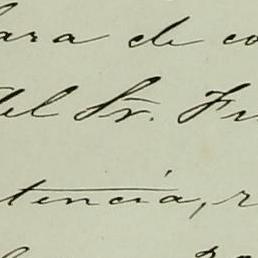 ara de co
del Sr. Fr
tencia, r